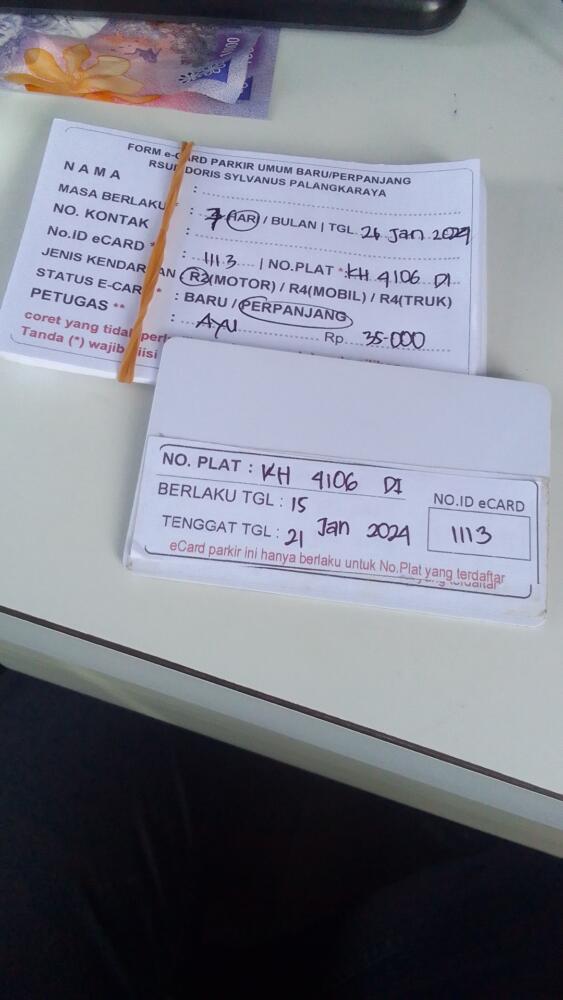 1000
FORM e-CARD PARKIR UMUM BARU/PERPANJANG
RSUD DORIS SYLVANUS PALANGKARAYA
NAMA :
MASA BERLAKU * : 7 HARI / BULAN | TGL 26 Jan 2024
NO. KONTAK :
No.ID eCARD * : 1113 | NO.PLAT *: KH 4106 DI
JENIS KENDARAAN R2(MOTOR) / R4(MOBIL) / R4(TRUK)
STATUS E-CARD * : BARU / PERPANJANG
PETUGAS ** : AYU Rp. 35.000
coret yang tidak perlu
Tanda (*) wajib diisi
NO. PLAT : KH 4106 DI
BERLAKU TGL : 15
NO.ID eCARD
TENGGAT TGL : 21 Jan 2024
1113
eCard parkir ini hanya berlaku untuk No.Plat yang terdaftar
yang terdaftar